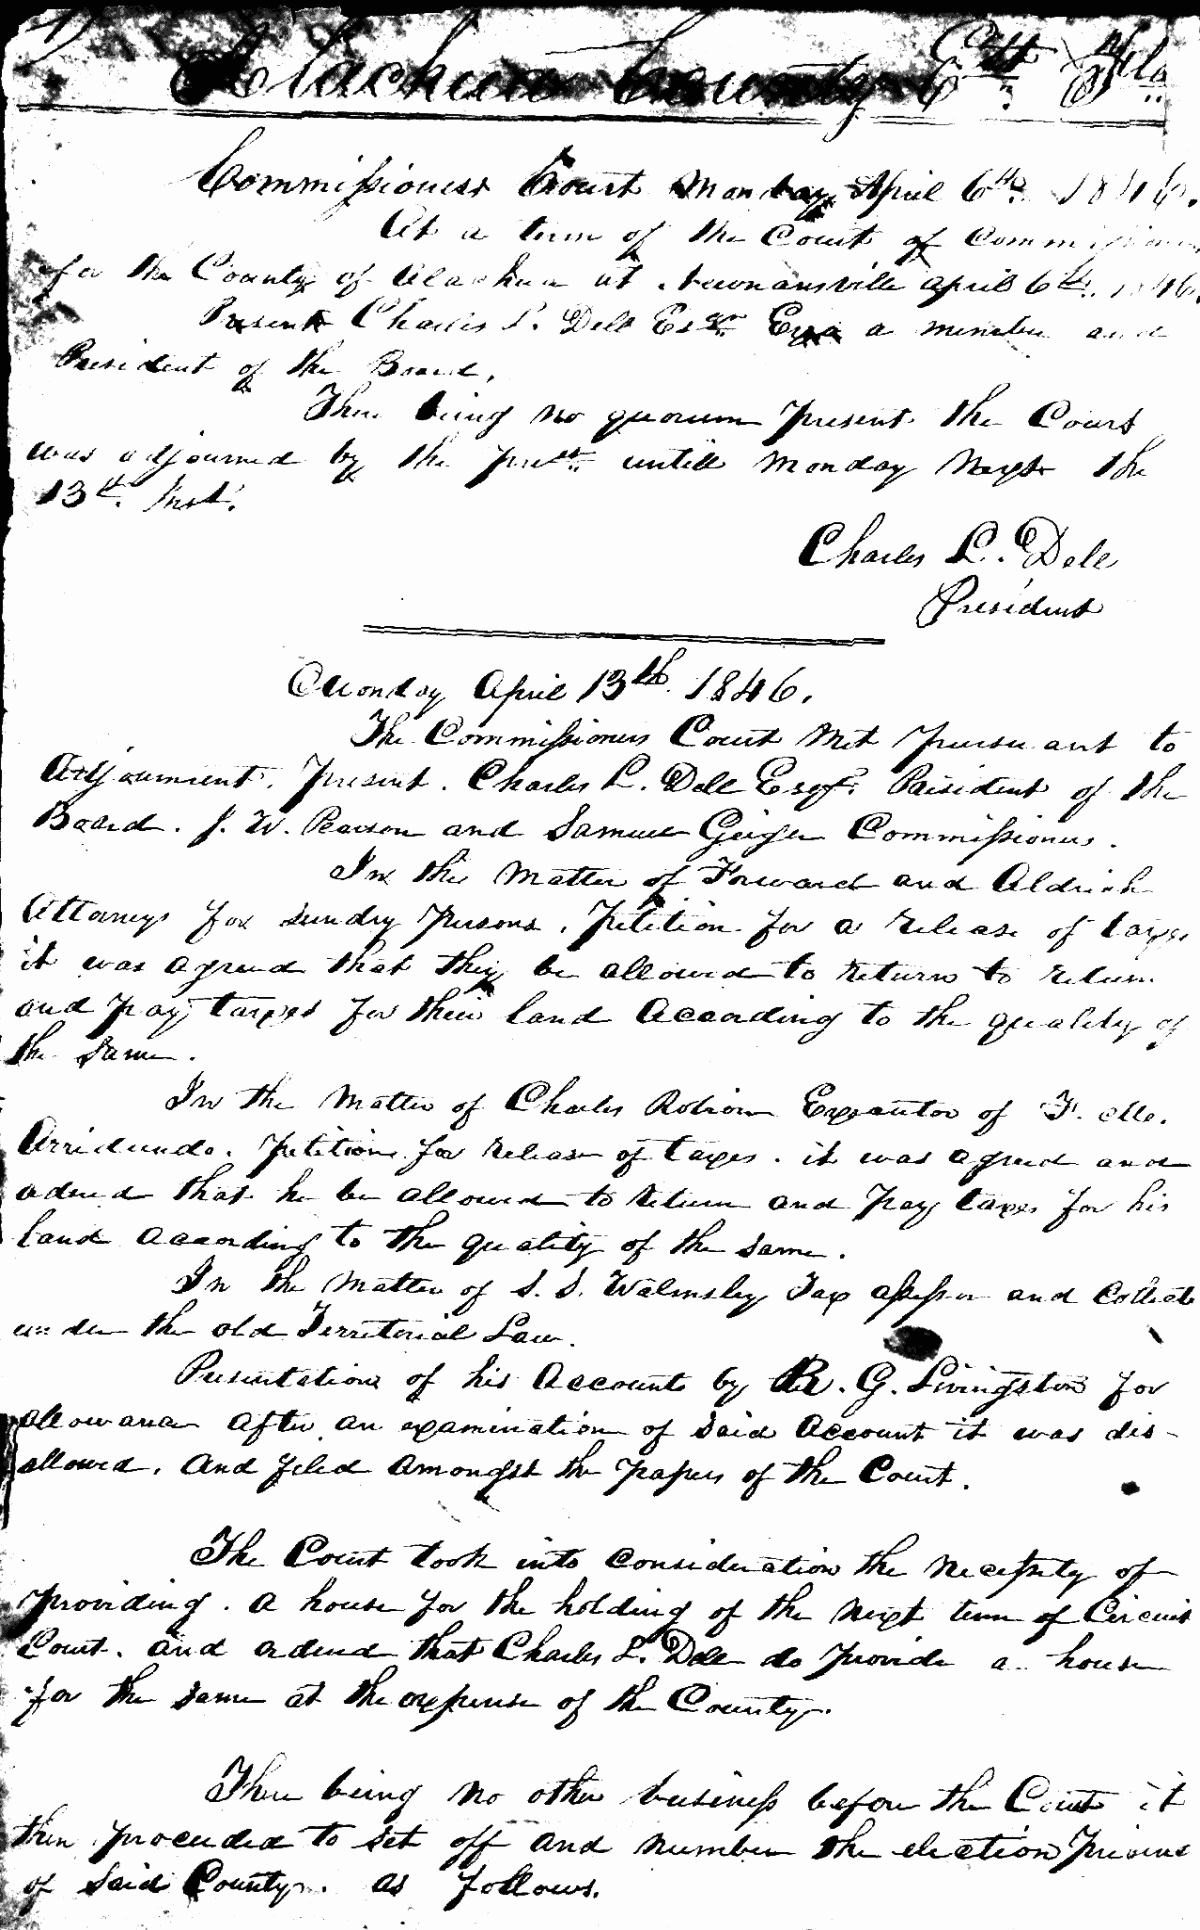 Alachua County Ctt Fla
Commissioners Court Monday April 6th 1846.
At a term of the Court of Commissioners
for the County of Alachua at Newnansville April 6th. 1846.
Present Charles L. Dell Esqr a member and
President of the Board.
There being no quorum present the Court
was adjourned by the prest. untill monday next the
13th. Inst.
Charles L. Dell
President
Monday April 13th. 1846.
The Commissioners Court Met pursuant to
Adjournment. present. Charles L. Dell Esqr. President of the
Board. J. W. Pearson and Samuel Geiger Commissioners.
In the Matter of Forward and Aldrich
Attorneys for sundry persons. petition for a release of taxes
it was agreed that they be allowed to return to return
and pay taxes for their land According to the quality of
the same.
In the Matter of Charles Robiou Executor of F. M.
Arridundo. petition for release of taxes. it was agreed and
ordered that he be allowed to return and pay taxes for his
land according to the quality of the same.
In the Matter of S. S. Walmsley Tax assessor and Collector
under the old Territorial Law.
Presentation of his Account by R. G. Livingston for
allowance after an examination of said Account it was dis-
allowed. And filed Amongst the papers of the Court.
The Court took into consideration the necessity of
providing. a house for the holding of the next term of Circuit
Court. and ordered that Charles L. Dell do provide a house
for the same at the expense of the County.
There being no other business before the Court it
then proceeded to set off and number the election Precincts
of said County. as follows.